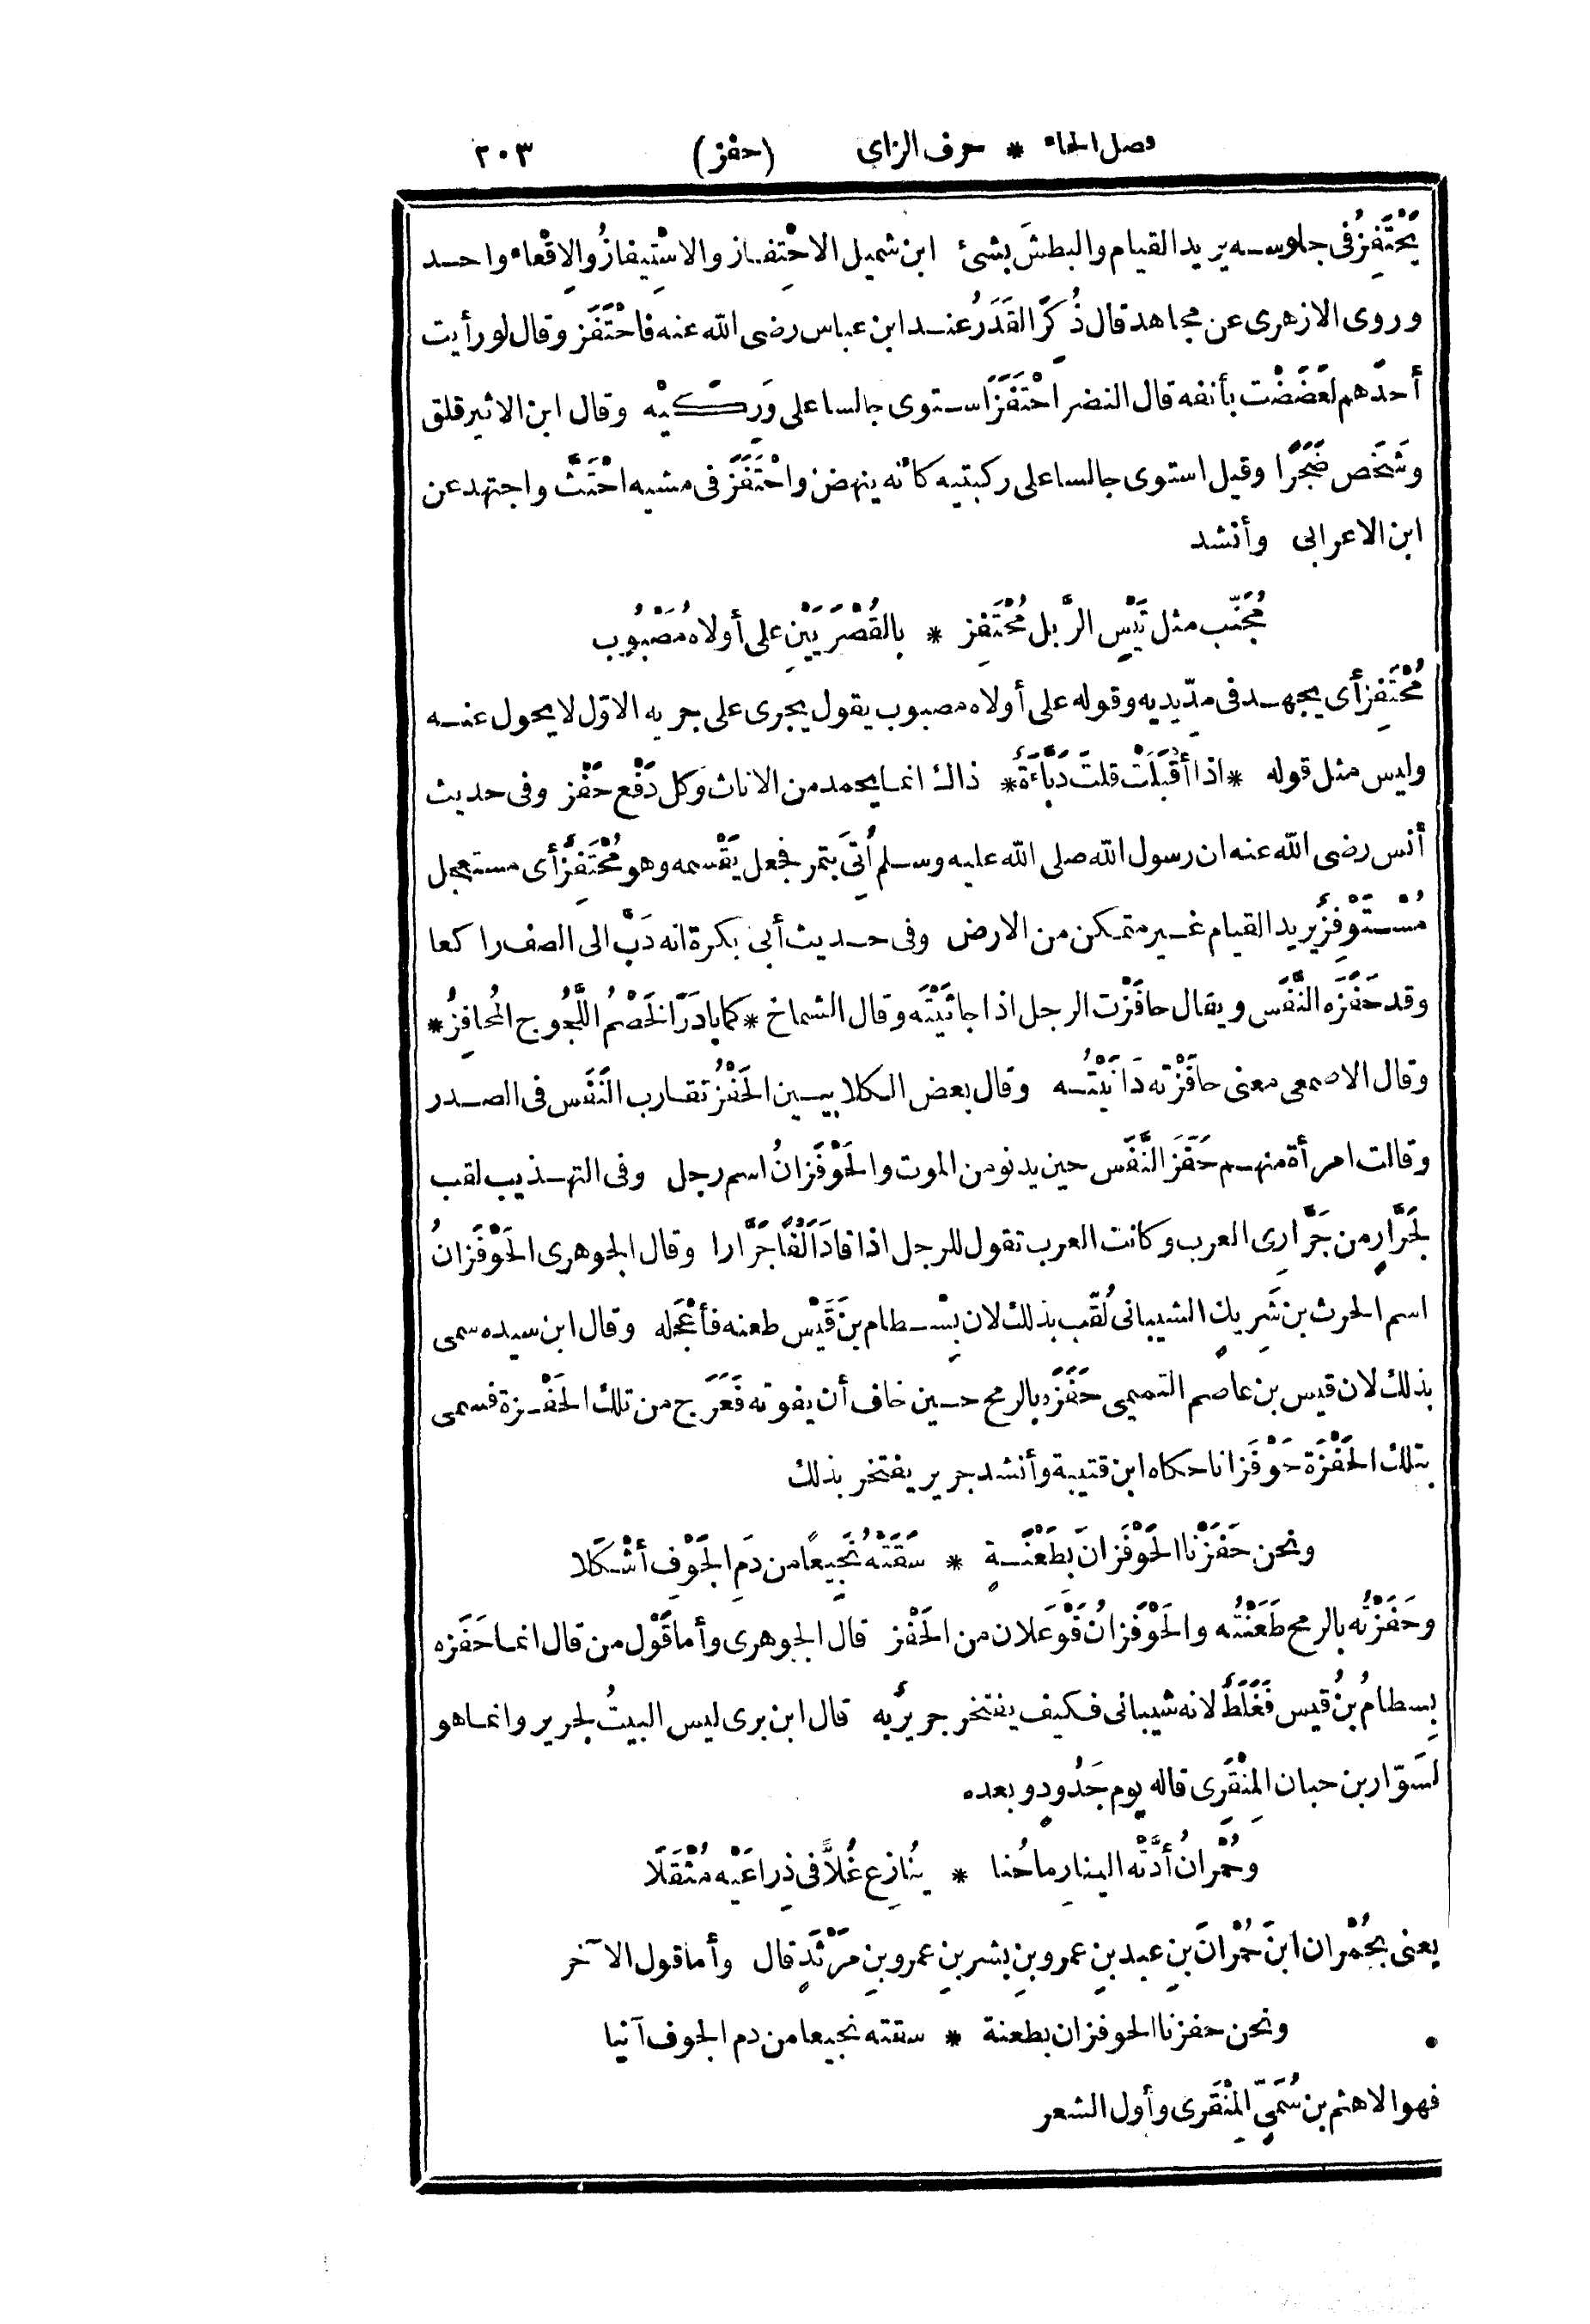 فصل الحاء * حرف الزاى (حفز) ٢٠٣
يَحْتَفِزُ فى جلوسه يريد القيام والبطشَ بشئ ابن شميل الاحْتِفاز والاسْتِيفازُ والاِقْعاء واحد
وروى الازهرى عن مجاهد قال ذُكِرَ القَدَرُ عند ابن عباس رضى الله عنه فاحْتَفَز وقال لو رأيت
أحدَهم لعَضَضْت بأنفه قال النضر احْتَفَزَ استوى جالسا على وَرِكَيْه وقال ابن الاثير قلق
وشَخَص ضَجَرًا وقيل استوى جالسا على ركبتيه كأنه ينهض واحْتَفَزَ فى مشيه احْتَثَّ واجتهد عن
ابن الاعرابى وأنشد
مُجَنَّب مثل تَيْسِ الرَّبل مُحْتَفِز * بالقُصْرَيَيْنِ على أولاه مَصْبُوُب
مُحْتَفِز أى يجهد فى مدّيديه وقوله على أولاه مصبوب يقول يجرى على جريه الاوّل لا يحول عنه
وليس مثل قوله * اذا أَقْبَلَتْ قلتَ دَبَّاءَةُ * ذاك انما يحمد من الاناث وكل دَفْع حَفْز وفى حديث
أنس رضى الله عنه ان رسول الله صلى الله عليه وسلم أُتِىَ بتمر فجعل يَقْسمه وهو مُحْتَفِزٌ أى مستعجل
مُسْتَوْفِزٌ يريد القيام غير متمكن من الارض وفى حديث أبى بكرة انه دَبَّ الى الصف راكعا
وقد حَفَزَه النَّفَس ويقال حافَزْت الرجل اذا جاثَيْتَه وقال الشماخ * كما بادَرَ الخَصْمُ اللَّجُوج المُحافِزُ *
وقال الاصمعى معنى حافَزْته دَانَيْتُه وقال بعض الكلابيين الحَفْزُ تقارب النَّفَس فى الصدر
وقالت امرأة منهم حَفَزَ النَّفَس حين يدنو من الموت والحَوْفَزانُ اسم رجل وفى التهذيب لقب
لجَرَّارٍ من جَرَّارِى العرب وكانت العرب تقول للرجل اذا قادَ أَلْفًا جَرَّارا وقال الجوهرى الحَوْفَزانُ
اسم الحرث بن شَرِيك الشيبانى لُقّب بذلك لان بِسْطام بنَ قَيْس طعنه فأعْجَله وقال ابن سيده سمى
بذلك لان قيس بن عاصم التميمى حَفَزَه بالرمح حين خاف أن يفوته فَعَرَج من تلك الحَفْزة فسمى
بتلك الحَفْزَة حَوْفَزانا حكاه ابن قتيبة وأنشد جرير يفتخر بذلك
ونحن حَفَزْنا الحَوْفَزانَ بِطَعْنَةٍ * سَقَتْهُ نَجِيعًا من دَمِ الجَوْفِ أَشْكَلا
وحَفَزْتُه بالرمح طَعَنْتُه والحَوْفَزانُ فَوْعَلان من الحَفْز قال الجوهرى وأما قَوْل من قال انما حَفَزه
بِسطامُ بنُ قيس فَغَلَطٌ لانه شيبانى فكيف يفتخر جريرٌ به قال ابن برى ليس البيتُ لجرير وانما هو
لسَوّار بن حبان المِنْقَرِى قاله يوم جَدُودٍ وبعده
وحُمْرانُ أدَّتْه الينا رِماحُنا * يُنَازِع غُلاًّ فى ذِراعَيْه مُثْقَلَا
يعنى بحُمْران ابنَ حُمْرانَ بنِ عبد بنِ عمرو بنِ بشر بنِ عمرو بنِ مَرْثَدٍ قال وأما قول الآخر
ونحن حفزنا الحوفزان بطعنة * سقته نجيعا من دم الجوف آنيا
فهو الاهتم بن سُمَىّ المِنْقَرى وأول الشعر